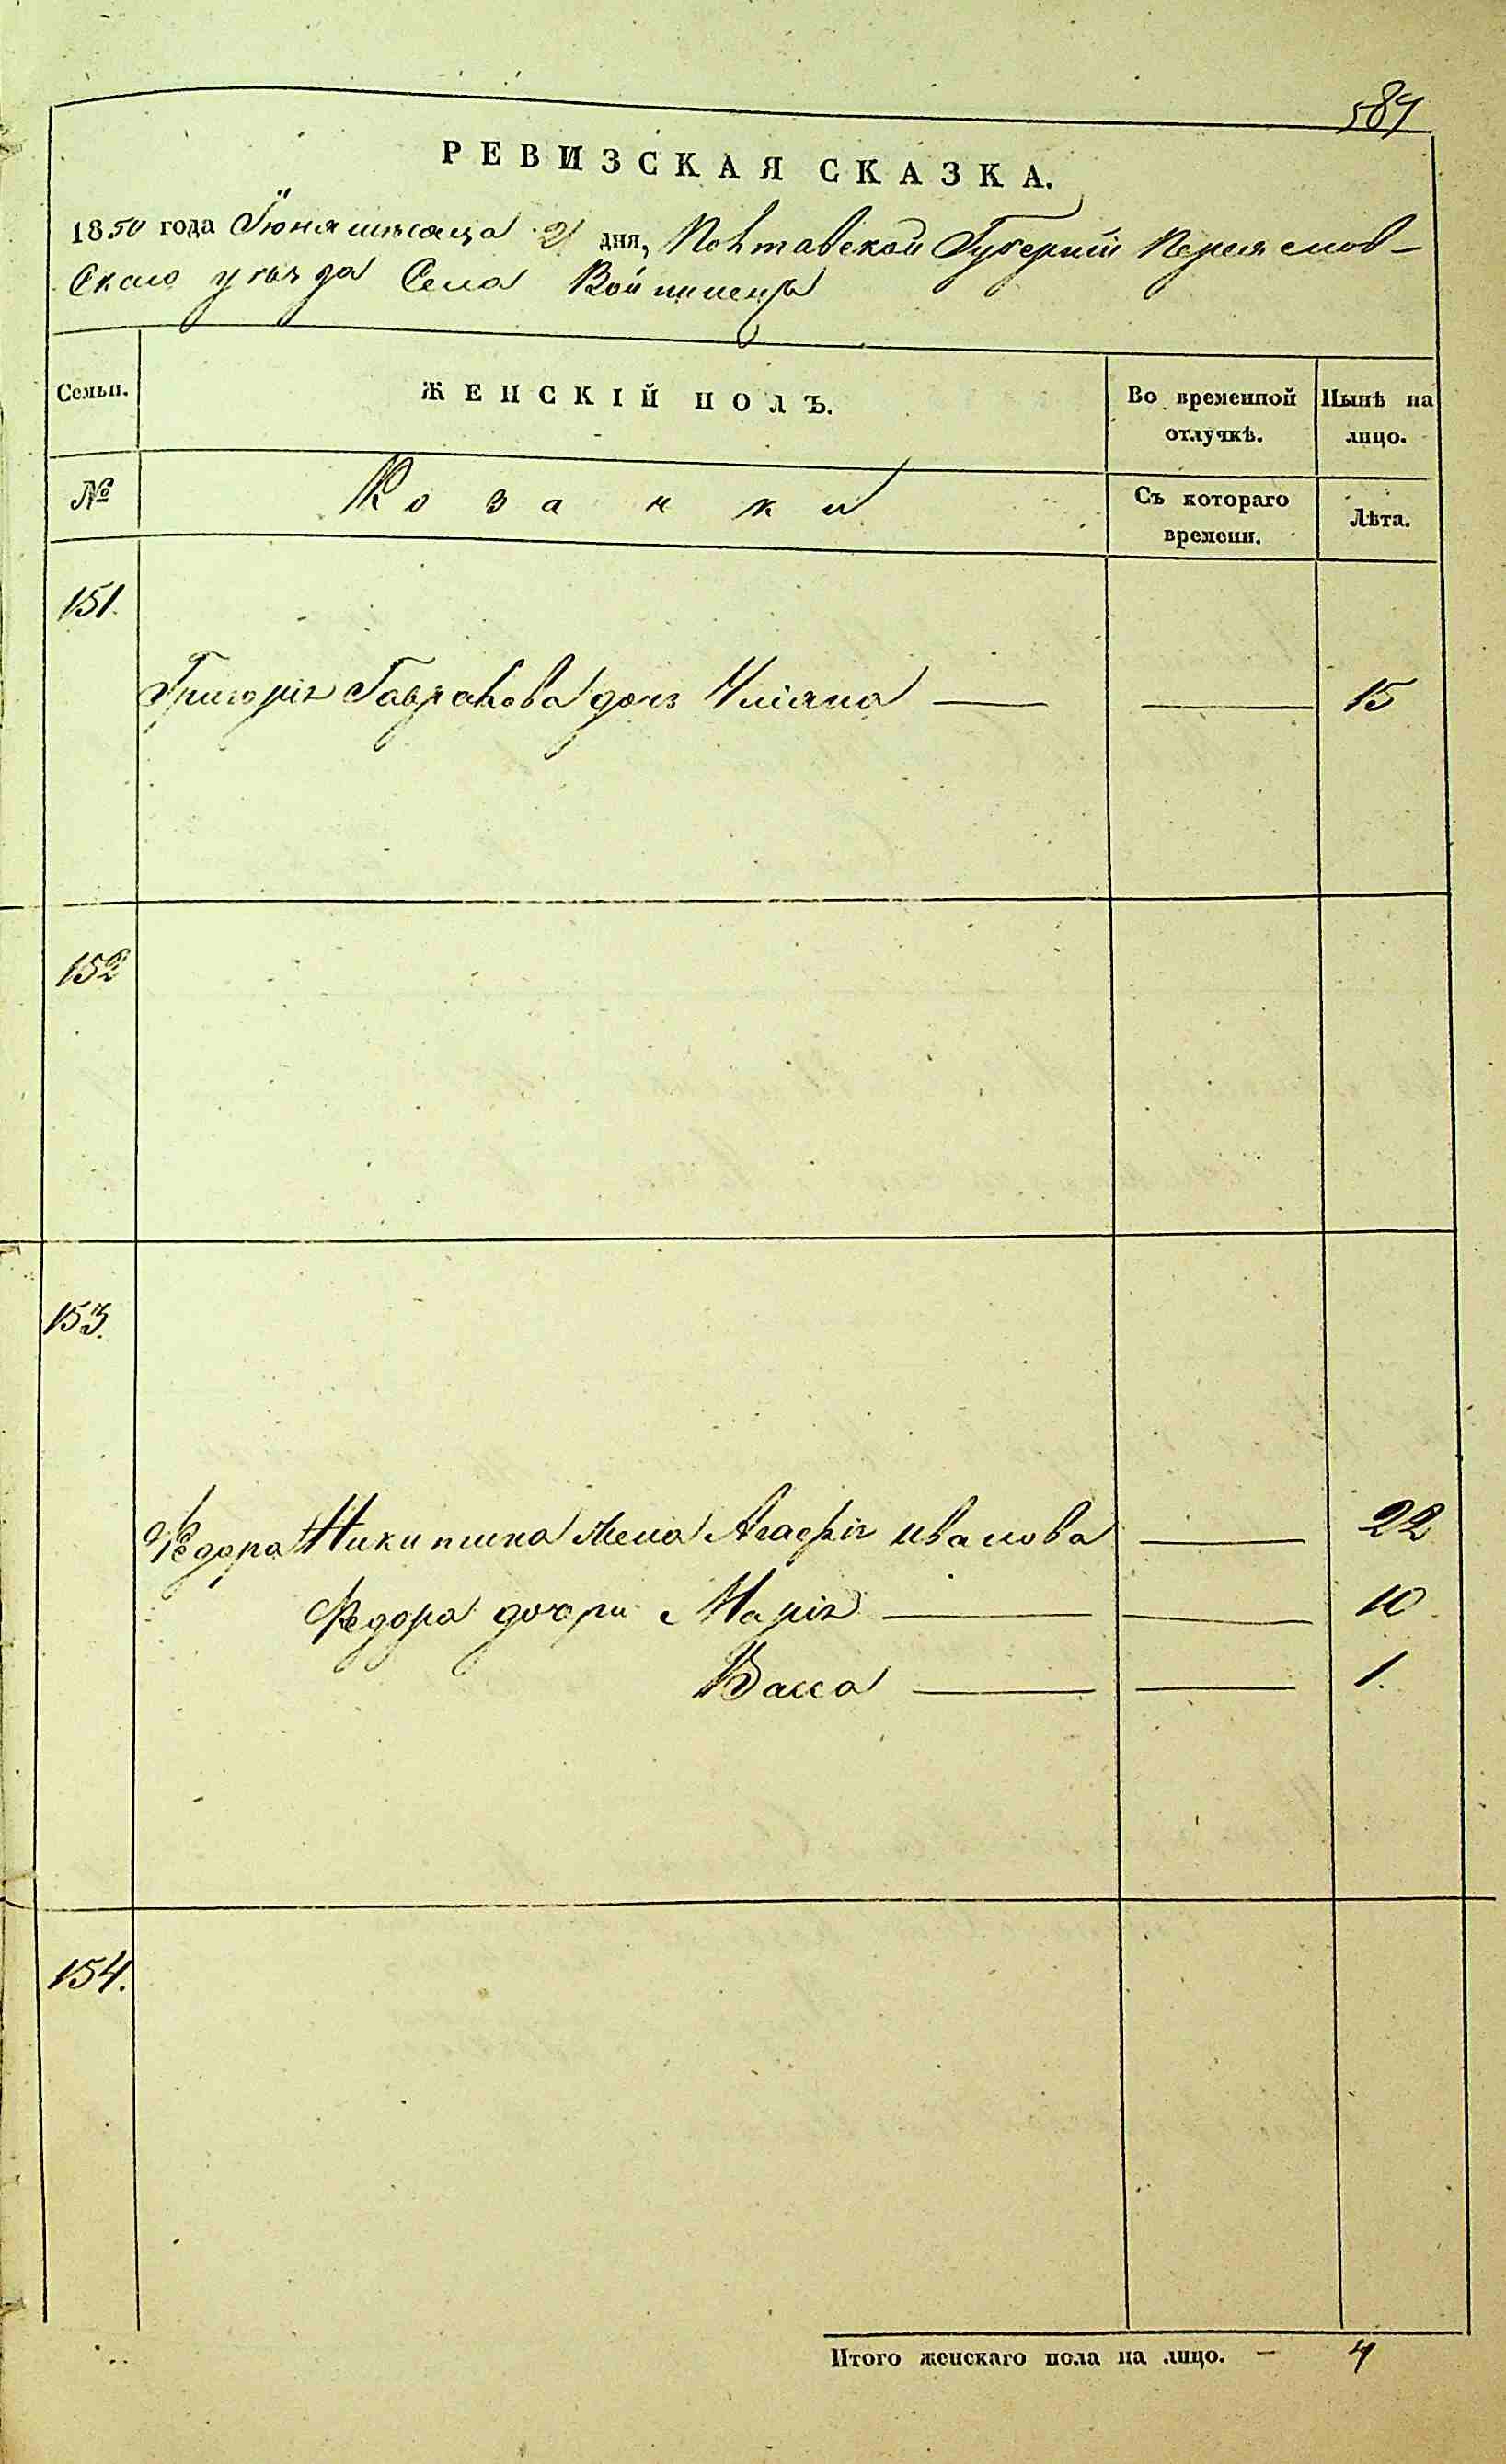 589
РЕВИЗСКАЯ СКАЗКА.
1850 года Іюня мѣсяца 2 дня, Полтавской Губерніи Переяслов-
скаго уѣзда Села Войтовецъ
Семьи. ЖЕНСКІЙ ПОЛЪ. Во временной отлучкѣ. Нынѣ на лицо.
№ Козачки Съ котораго времени. Лѣта.
151.
Григорія Гаврилова дочь Уліяна — — 15
152
153.
Федора Никитина жена Агафія Иванова — 22
Федора дочери Марія — — 10
Васса — — 1.
154.
Итого женскаго пола на лицо. — 4